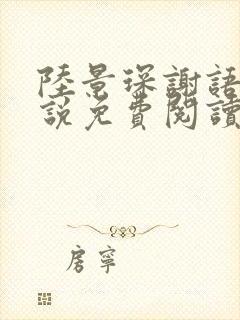 陸景琛謝語
說免費閱讀
房寧